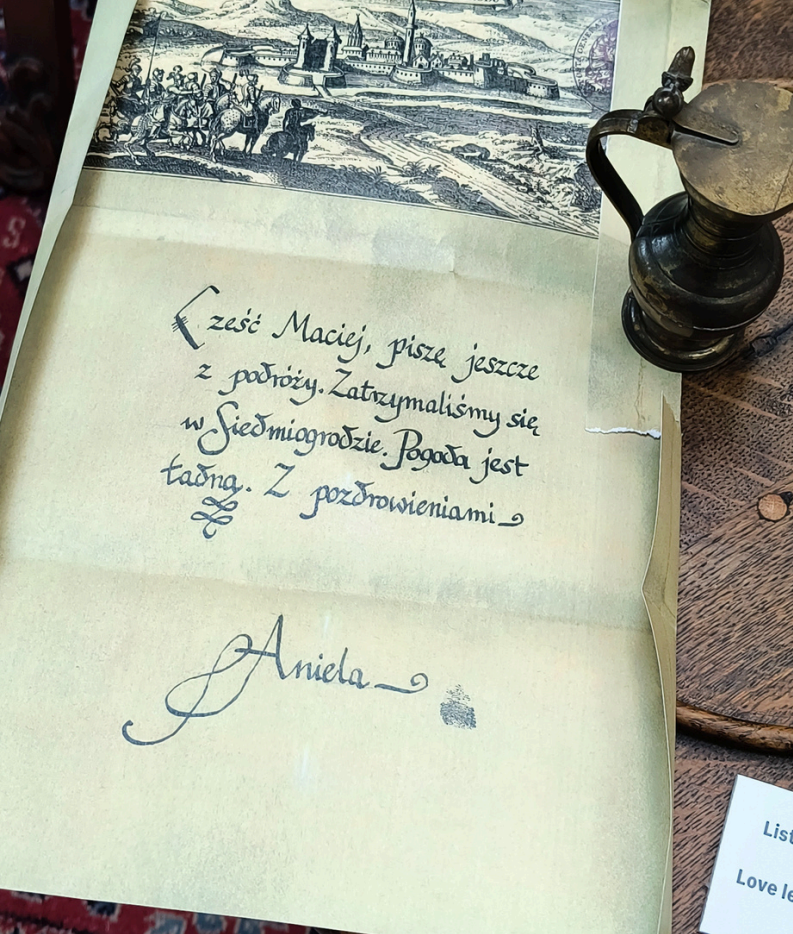 Cześć Maciej, piszę jeszcze
z podróży. Zatrzymaliśmy się
w Siedmiogrodzie. Pogoda jest
ładna. Z pozdrowieniami
Aniela
List
Love